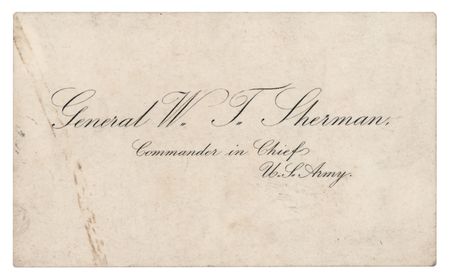 General W. T. Sherman.
Commander in Chief
U.S. Army.